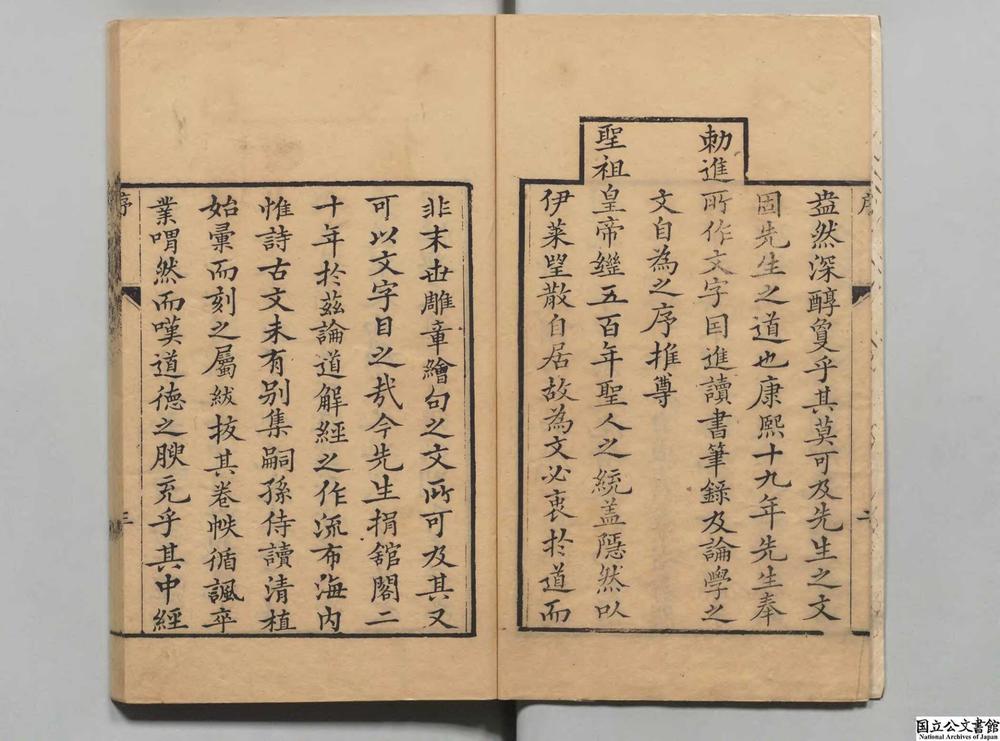 序
二
盎然深醇敻乎其莫可及先生之文
固先生之道也康熙十九年先生奉
勅進所作文字因進讀書筆錄及論學之
文自為之序推尊
聖祖皇帝繼五百年聖人之統盖隱然以
伊萊望散自居故為文必衷於道而
非末世雕章繪句之文所可及其又
可以文字目之哉今先生捐舘閣二
十年於茲論道解經之作流布海内
惟詩古文未有别集嗣孫侍讀清植
始彚而刻之屬紱抜其卷帙循諷卒
業喟然而嘆道德之腴充乎其中經
序
三
国立公文書館
National Archives of Japan